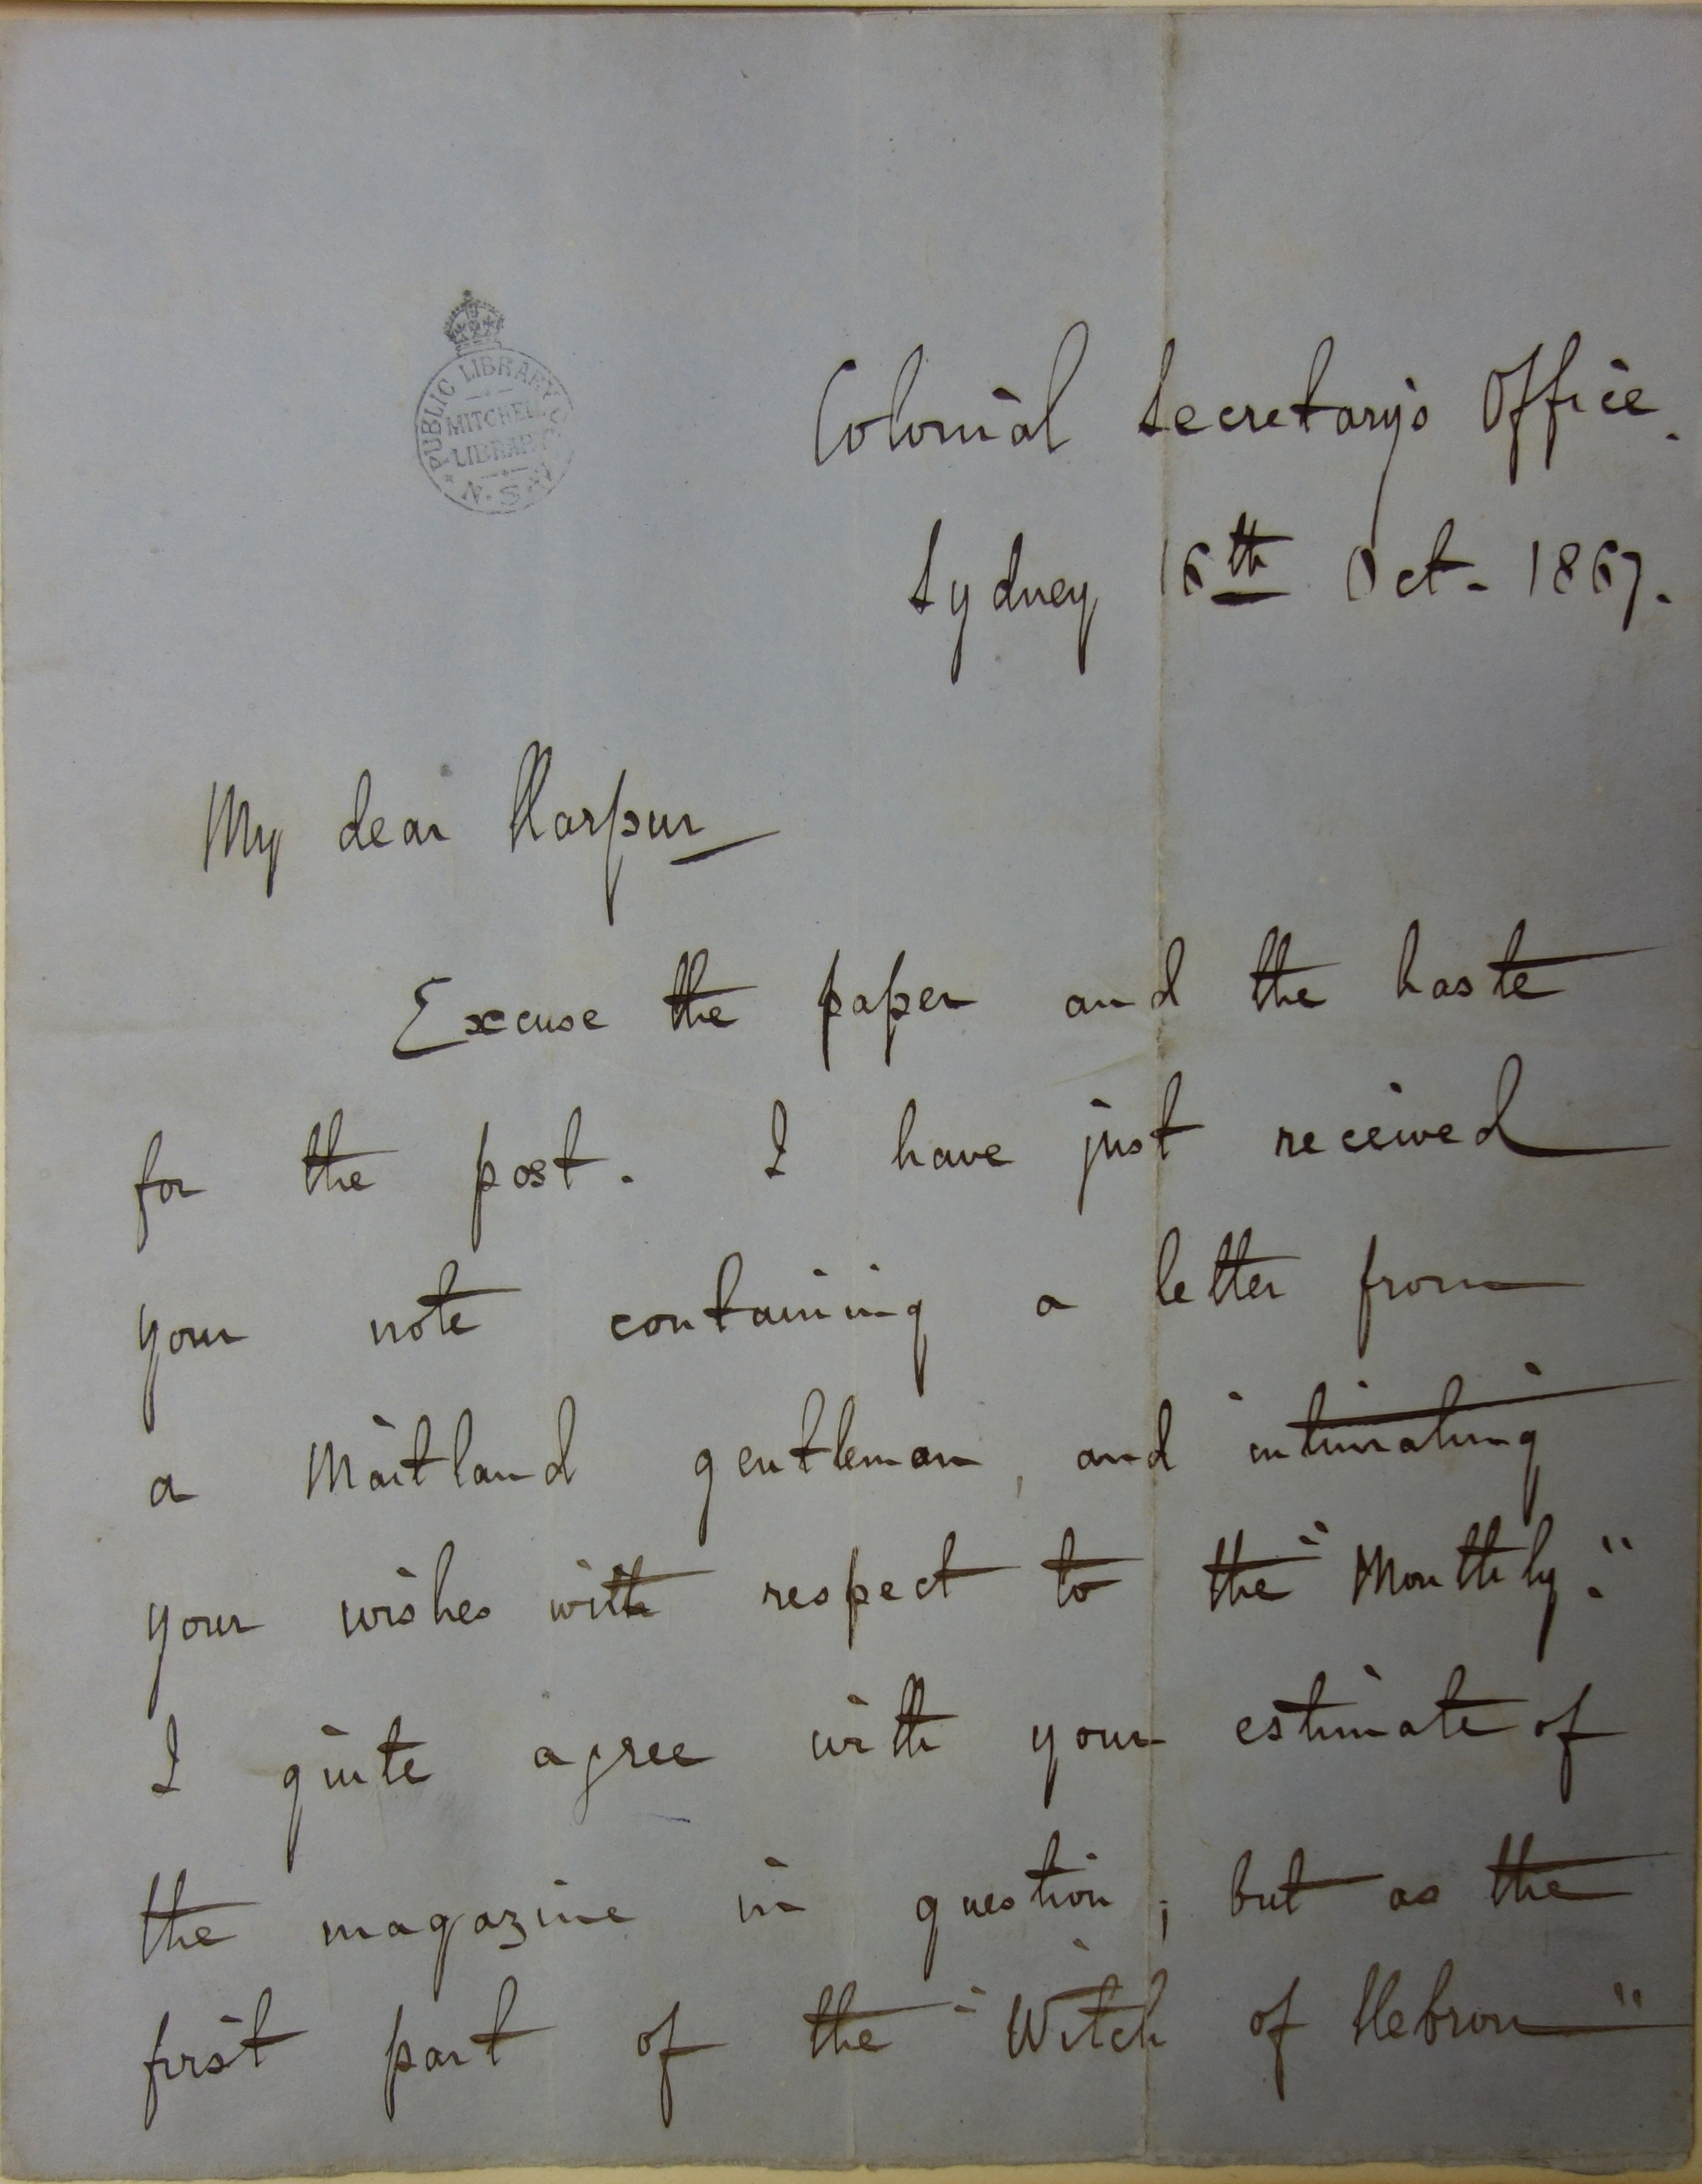 PUBLIC LIBRARY
MITCHELL
LIBRARY
N.S.W.
Colonial Secretary's Office.
Sydney 16th Oct. 1867.
My dear Harpur
Excuse the paper and the haste
for the post. I have just received
your note containing a letter from
a Maitland gentleman, and intimating
your wishes with respect to the "Monthly."
I quite agree with your estimate of
the magazine in question; but as the
first part of the "Witch of Hebron"